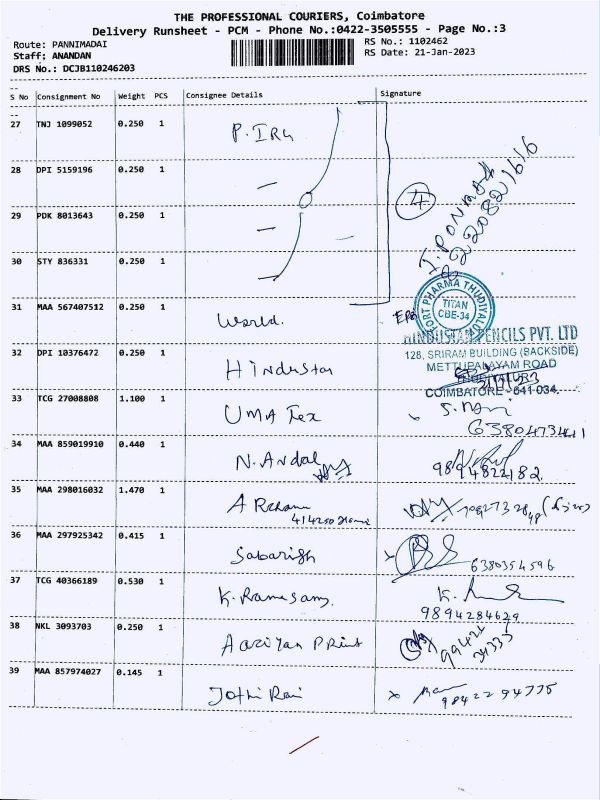 THE PROFESSIONAL COURIERS, Coimbatore
Delivery Runsheet - PCM - Phone No.:0422-3505555 - Page No.:3
Route: PANNIMADAI
RS No.: 1102462
Staff; ANANDAN
RS Date: 21-Jan-2023
DRS No.: DCJB110246203
S No Consignment No Weight PCS Consignee Details Signature
27 TNJ 1099052 0.250 1 P. IRU
28 DPI 5159196 0.250 1
29 PDK 8013643 0.250 1
4
30 STY 836331 0.250 1
FORT PHARMA THUDIYALUR
TITAN
CBE-34
31 MAA 567407512 0.250 1 World.
HINDUSTAN PENCILS PVT. LTD
32 DPI 10376472 0.250 1 Hindustan
128, SRIRAM BUILDING (BACKSIDE)
METTUPALAYAM ROAD
COIMBATORE - 641 034.
33 TCG 27008808 1.100 1 UMA Tex
34 MAA 859019910 0.440 1 N. Andal
9894822182
35 MAA 298016032 1.470 1
36 MAA 297925342 0.415 1 Sabarish
6380354596
37 TCG 40366189 0.530 1 K. Ramesamy.
9894284629
38 NKL 3093703 0.250 1 Aariyan Print
39 MAA 857974027 0.145 1 Jothi Rani